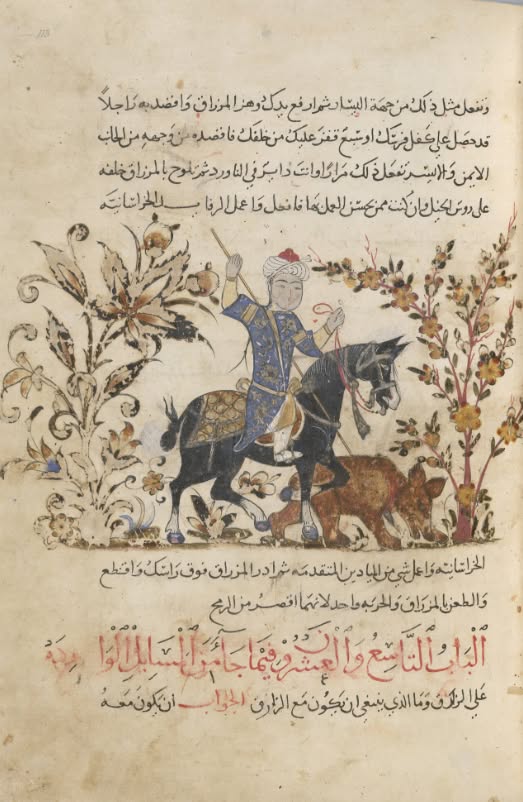 وتفعل مثل ذلك من جهة اليسار ثم ارفع يدك وهز المزراق وافصد به راجلاً
قد حصل علي كفل فرسك او سبع قفز عليك من خلفك فاقصده من وجهه من الجانب
الايمن والايسر تفعل ذلك مراراً وانت داير في الناورد ثم تلوح بالمزراق خلفه
علي روس الخيل وان كنت ممن يحسن العمل بها فافعل واعمل الخراسانيه
الخراسانيه واعمل شي من الميادين المتقدمه ثم ادر المزراق فوق راسك واقطع
والطعن بالمزراق والحربه واحد لانهما اقصر من الرمح
الباب التاسع والعشرون فيما جآ من المسايل الوارده
علي الزراق وما الذي ينبغي ان يكون مع الزارق الجواب ان يكون معه